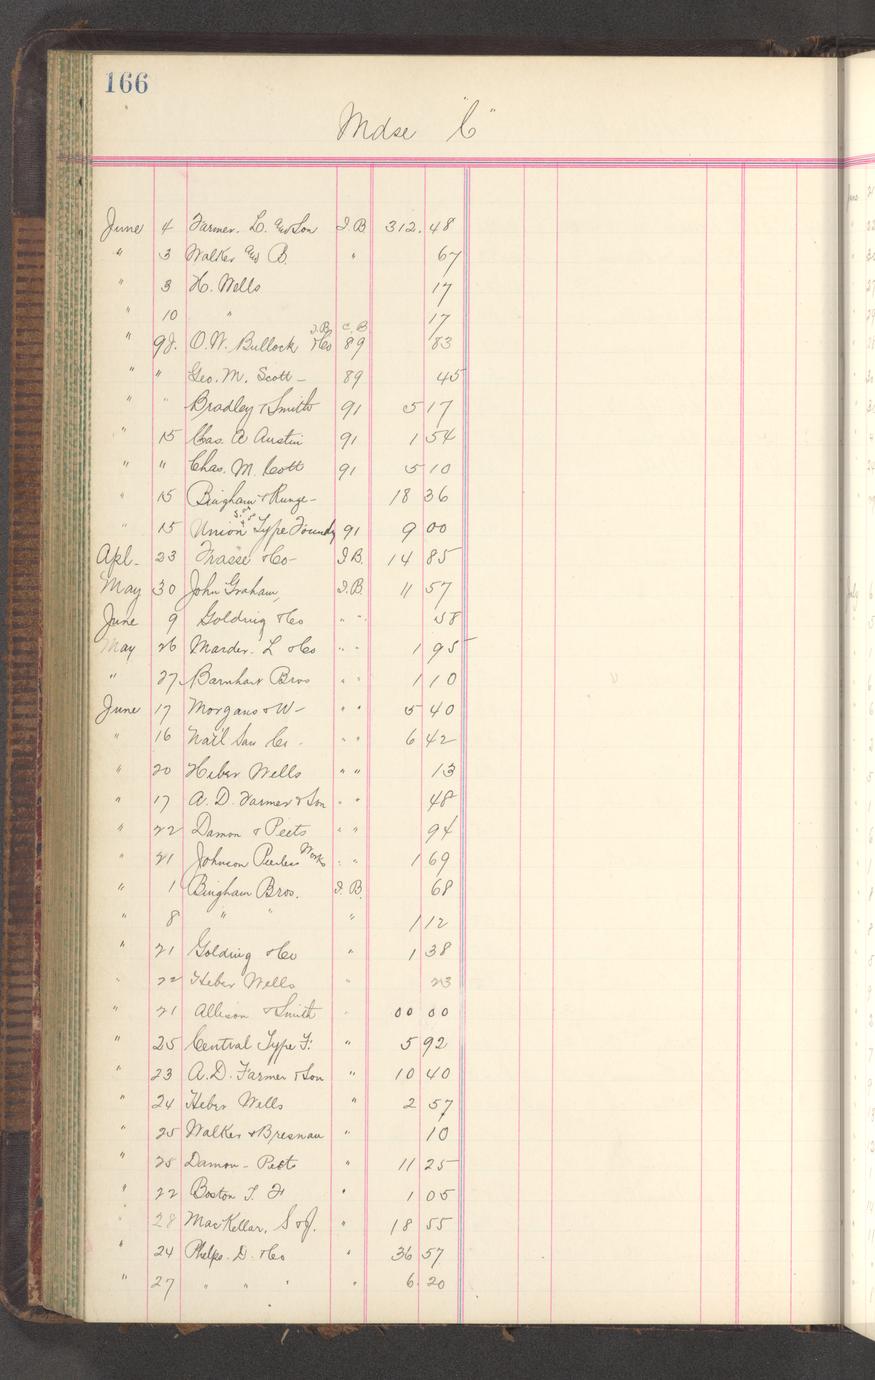 166
Mdse "C"
June 4 Farmer. L. and Son I.B 312. 48
" 3 Walker and B. " 67
" 3 H. Wells 17
" 10 " 17
" 9 O.W. Bullock & Co I.B. C.B 89 83
" " Geo. M. Scott - 89 45
" " Bradley & Smith 91 5 17
" 15 Chas. A Austin 91 1 54
" " Chas. M. Cott 91 5 10
" 15 Bingham & Runge - 18 36
" 15 Union Type Foundry 91 9 00
Apl. 23 Frasse & Co - I B. 14 85
May 30 John Graham, I.B. 11 57
June 9 Golding & Co " " 58
May 26 Marder. L & Co " " 1 95
" 27 Barnhart Bros " " 1 10
June 17 Morgans & W - " " 5 40
" 16 Nat'l Saw Co. " " 6 42
" 20 Heber Wells " " 13
" 17 A. D. Farmer & Son " " 48
" 22 Damon & Peets " " 94
" 21 Johnson Peerless Works " " 1 69
" 1 Bingham Bros. I. B. 68
" 8 " " " 1 12
" 21 Golding & Co " 1 38
" 22 Heber Wells " 23
" 21 Allison & Smith " 00 00
" 25 Central Type F. " 5 92
" 23 A.D. Farmer & Son " 10 40
" 24 Heber Wells " 2 57
" 25 Walker & Bresnan " 10
" 25 Damon - Peets " 11 25
" 22 Boston T. F " 1 05
" 28 MacKellar, S & J. " 18 55
" 24 Phelps. D. & Co " 36 57
" 27 " " " " 6. 20